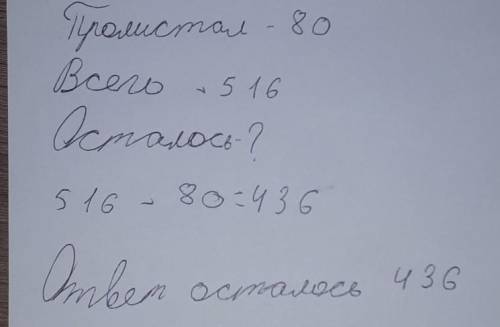 Пролистал - 80
Всего - 516
Осталось-?
516 - 80=436
Ответ осталось 436